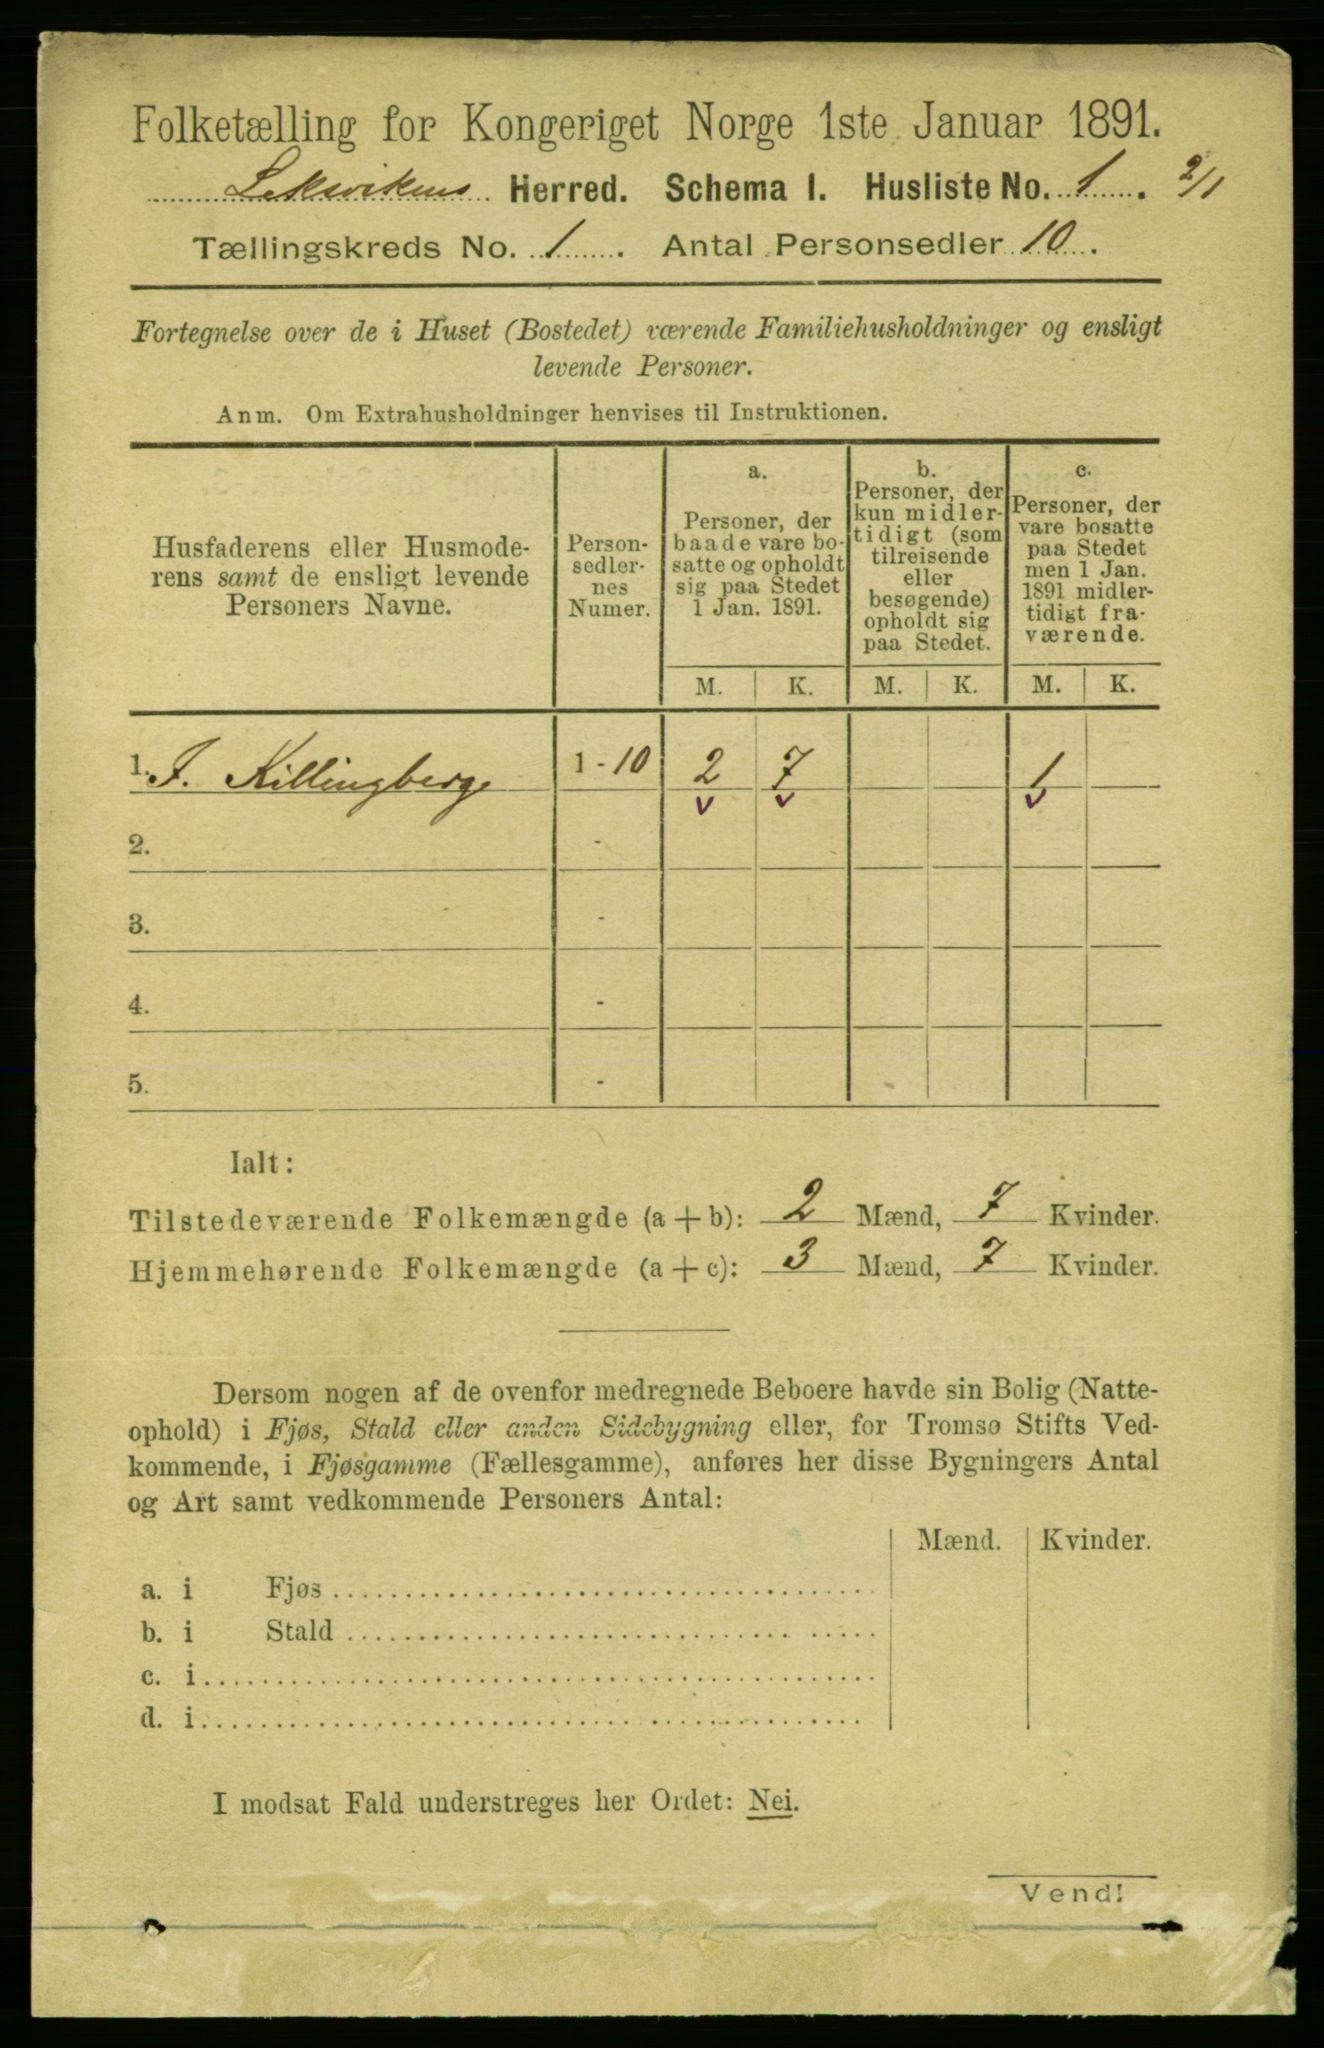 Folketælling for Kongeriget Norge 1ste Januar 1891.
Leksvikens Herred. Schema I. Husliste No. 1. 2/1
Tællingskreds No. 1. Antal Personsedler 10.
Fortegnelse over de i Huset (Bostedet) værende Familiehusholdninger og ensligt
levende Personer.
Anm. Om Extrahusholdninger henvises til Instruktionen.
Husfaderens eller Husmode-
rens samt de ensligt levende
Personers Navne.
Person-
sedler-
nes
Numer.
a.
Personer, der
baade vare bo-
satte og opholdt
sig paa Stedet
1 Jan. 1891.
b.
Personer, der
kun midler-
tidigt (som
tilreisende
eller
besøgende)
opholdt sig
paa Stedet.
c.
Personer, der
vare bosatte
paa Stedet
men 1 Jan.
1891 midler-
tidigt fra-
værende.
M. K. M. K. M. K.
1. J. Killingberg 1 - 10 2 7 1
v v v
2. -
3. -
4. -
5. -
Ialt:
Tilstedeværende Folkemængde (a + b): 2 Mænd, 7 Kvinder.
Hjemmehørende Folkemængde (a + c): 3 Mænd, 7 Kvinder.
Dersom nogen af de ovenfor medregnede Beboere havde sin Bolig (Natte-
ophold) i Fjøs, Stald eller anden Sidebygning eller, for Tromsø Stifts Ved-
kommende, i Fjøsgamme (Fællesgamme), anføres her disse Bygningers Antal
og Art samt vedkommende Personers Antal:
Mænd. Kvinder.
a. i Fjøs
b. i Stald
c. i
d. i
I modsat Fald understreges her Ordet: Nei.
Vend!